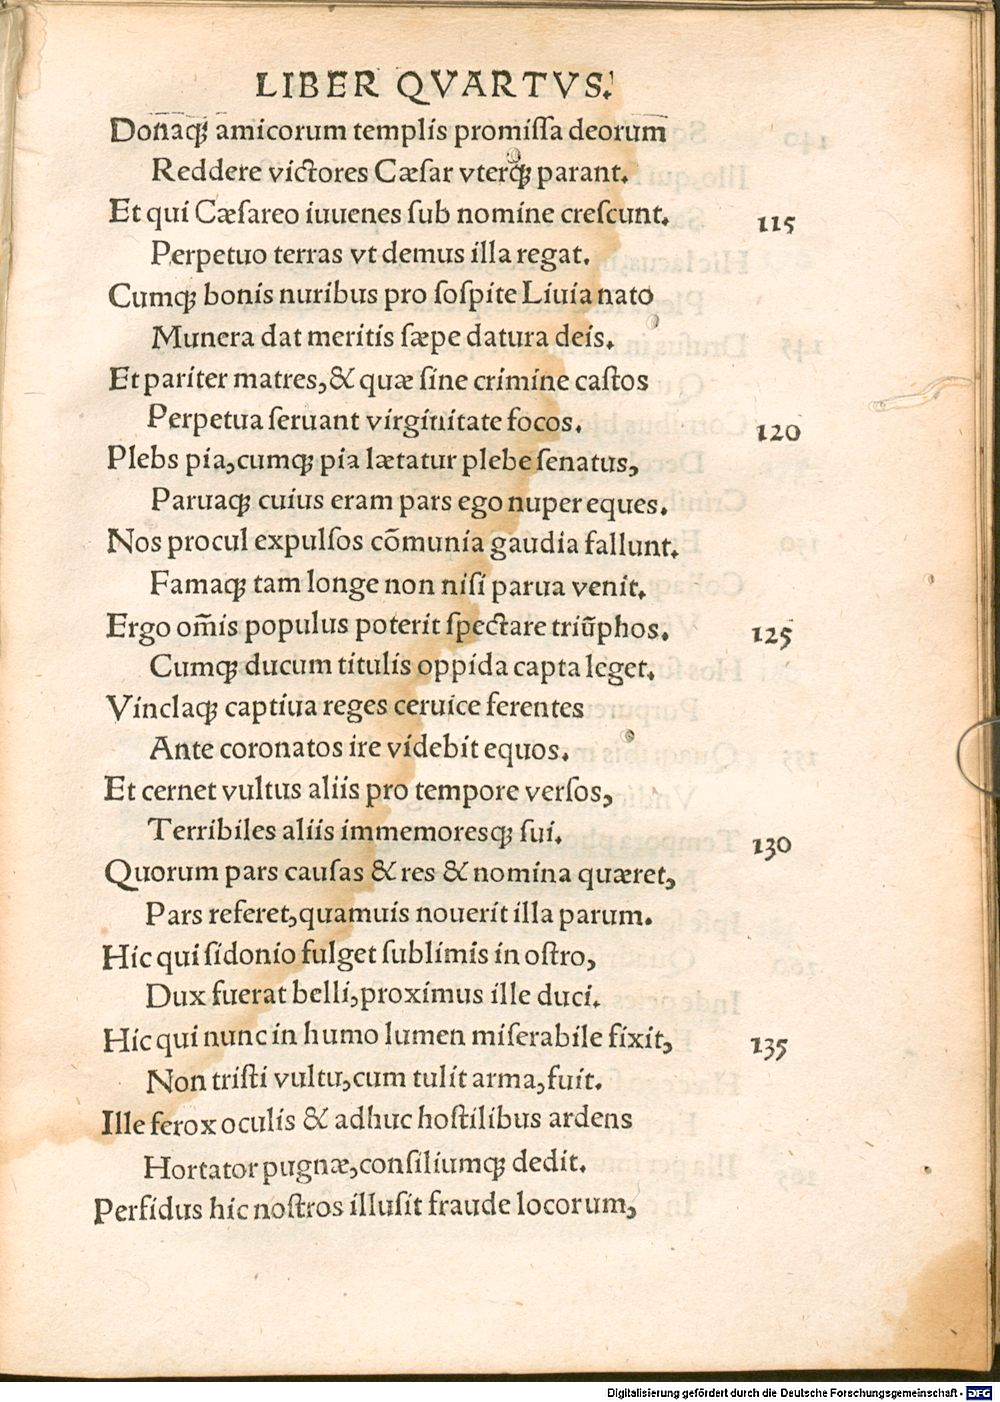 LIBER QVARTVS.
Donaqꝫ amicorum templis promiſſa deorum
Reddere victores Cæſar vterqꝫ parant.
Et qui Cæſareo iuuenes ſub nomine creſcunt. 115
Perpetuo terras vt demus illa regat.
Cumqꝫ bonis nuribus pro ſoſpite Liuia nato
Munera dat meritis ſæpe datura deis.
Et pariter matres,& quæ ſine crimine caſtos
Perpetua ſeruant virginitate focos. 120
Plebs pia,cumqꝫ pia lætatur plebe ſenatus,
Paruaqꝫ cuius eram pars ego nuper eques.
Nos procul expulſos cōmunia gaudia fallunt.
Famaqꝫ tam longe non niſi parua venit.
Ergo om̄is populus poterit ſpectare triūphos. 125
Cumqꝫ ducum titulis oppida capta leget.
Vinclaqꝫ captiua reges ceruice ferentes
Ante coronatos ire videbit equos.
Et cernet vultus aliis pro tempore verſos,
Terribiles aliis immemoresqꝫ ſui. 130
Quorum pars cauſas & res & nomina quæret,
Pars referet,quamuis nouerit illa parum.
Hic qui ſidonio fulget ſublimis in oſtro,
Dux fuerat belli,proximus ille duci.
Hic qui nunc in humo lumen miſerabile fixit, 135
Non triſti vultu,cum tulit arma,fuit.
Ille ferox oculis & adhuc hoſtilibus ardens
Hortator pugnæ,conſiliumqꝫ dedit.
Perfidus hic noſtros illuſit fraude locorum,
Digitalisierung gefördert durch die Deutsche Forschungsgemeinschaft - DFG